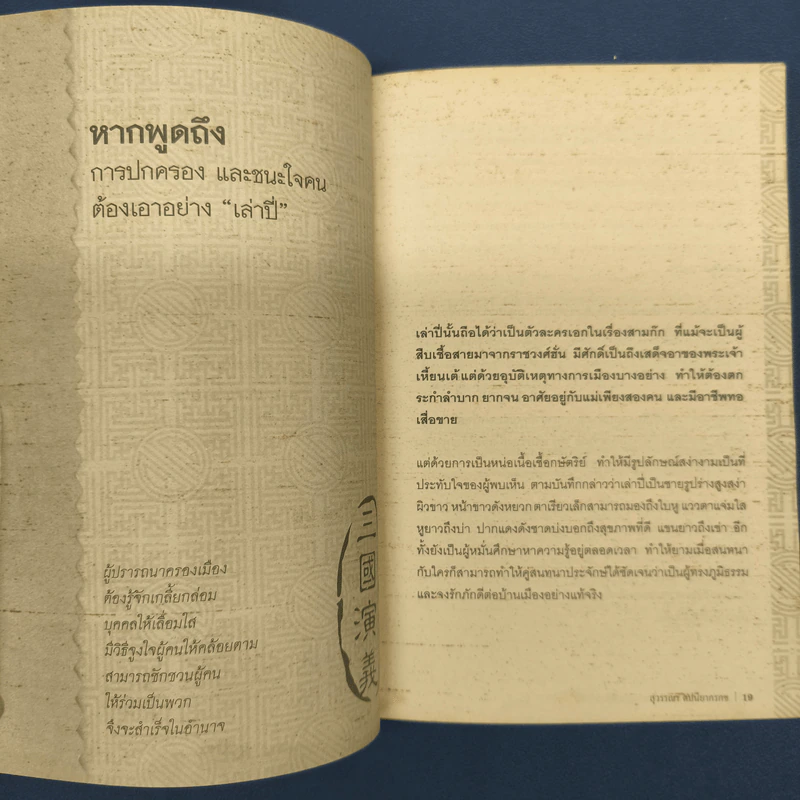 หากพูดถึง
การปกครอง และชนะใจคน
ต้องเอาอย่าง “เล่าปี่”
ผู้ปรารถนาครองเมือง
ต้องรู้จักเกลี้ยกล่อม
บุคคลให้เลื่อมใส
มีวิธีจูงใจผู้คนให้คล้อยตาม
สามารถชักชวนผู้คน
ให้ร่วมเป็นพวก
จึงจะสำเร็จในอำนาจ
三國演義
เล่าปี่นั้นถือได้ว่าเป็นตัวละครเอกในเรื่องสามก๊ก ที่แม้จะเป็นผู้
สืบเชื้อสายมาจากราชวงศ์ฮั่น มีศักดิ์เป็นถึงเสด็จอาของพระเจ้า
เหี้ยนเต้ แต่ด้วยอุบัติเหตุทางการเมืองบางอย่าง ทำให้ต้องตก
ระกำลำบาก ยากจน อาศัยอยู่กับแม่เพียงสองคน และมีอาชีพทอ
เสื่อขาย
แต่ด้วยการเป็นหน่อเนื้อเชื้อกษัตริย์ ทำให้มีรูปลักษณ์สง่างามเป็นที่
ประทับใจของผู้พบเห็น ตามบันทึกกล่าวว่าเล่าปี่เป็นชายรูปร่างสูงสง่า
ผิวขาว หน้าขาวดังหยวก ตาเรียวเล็กสามารถมองถึงใบหู แววตาแจ่มใส
หูยาวถึงบ่า ปากแดงดังชาดบ่งบอกถึงสุขภาพที่ดี แขนยาวถึงเข่า อีก
ทั้งยังเป็นผู้หมั่นศึกษาหาความรู้อยู่ตลอดเวลา ทำให้ยามเมื่อสนทนา
กับใครก็สามารถทำให้คู่สนทนาประจักษ์ได้ชัดเจนว่าเป็นผู้ทรงภูมิธรรม
และจงรักภักดีต่อบ้านเมืองอย่างแท้จริง
| 19